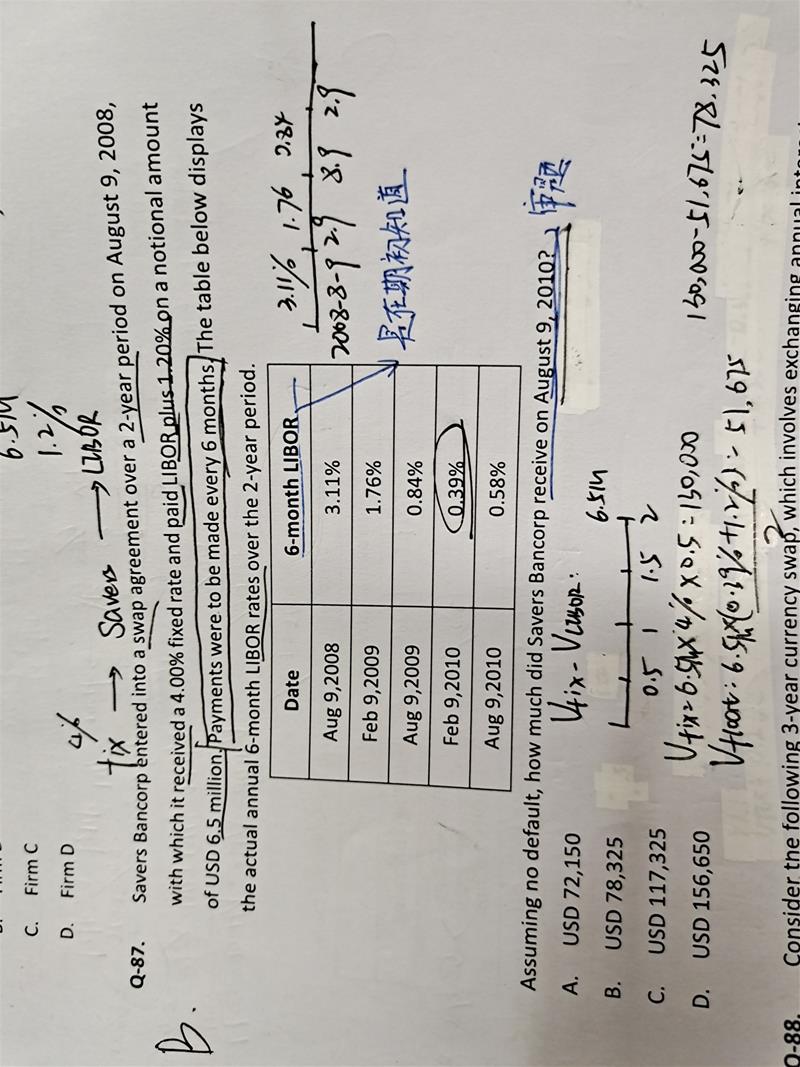 6.5M
1.2%
C. Firm C
D. Firm D
4%
fix → Savers → LIBOR
B.
Q-87. Savers Bancorp entered into a swap agreement over a 2-year period on August 9, 2008,
with which it received a 4.00% fixed rate and paid LIBOR plus 1.20% on a notional amount
of USD 6.5 million. Payments were to be made every 6 months. The table below displays
the actual annual 6-month LIBOR rates over the 2-year period.
Date 6-month LIBOR
Aug 9,2008 3.11%
Feb 9,2009 1.76%
Aug 9,2009 0.84%
Feb 9,2010 0.39%
Aug 9,2010 0.58%
3.11% 1.76 0.84
2008-8-9 2.9 8.9 2.9
是在期初知道
Assuming no default, how much did Savers Bancorp receive on August 9, 2010?
审题
A. USD 72,150
B. USD 78,325
C. USD 117,325
D. USD 156,650
Vfix - VLIBOR:
6.5M
0.5 1 1.5 2
Vfix = 6.5M × 4% × 0.5 = 130,000
Vfloat: 6.5M × (0.39% + 1.2%) = 51,675
2
130,000 - 51,675 = 78,325
Q-88. Consider the following 3-year currency swap, which involves exchanging annual